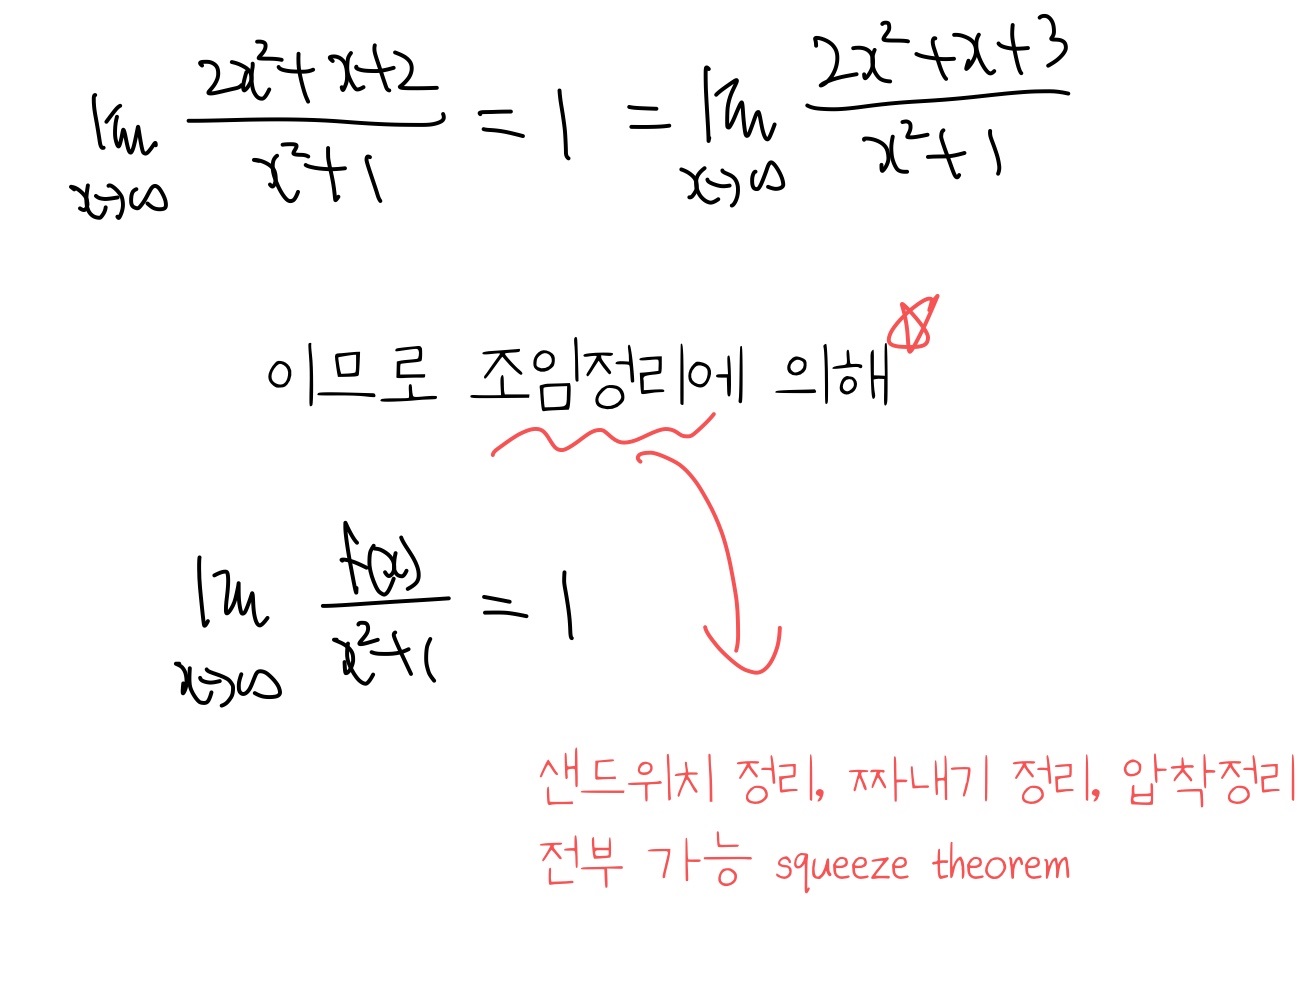 lim_{x→∞} (2x²+x+2)/(x²+1) = 1 = lim_{x→∞} (2x²+x+3)/(x²+1)
이므로 조임정리에 의해
lim_{x→∞} f(x)/(x²+1) = 1
샌드위치 정리, 짜내기 정리, 압착정리
전부 가능 squeeze theorem